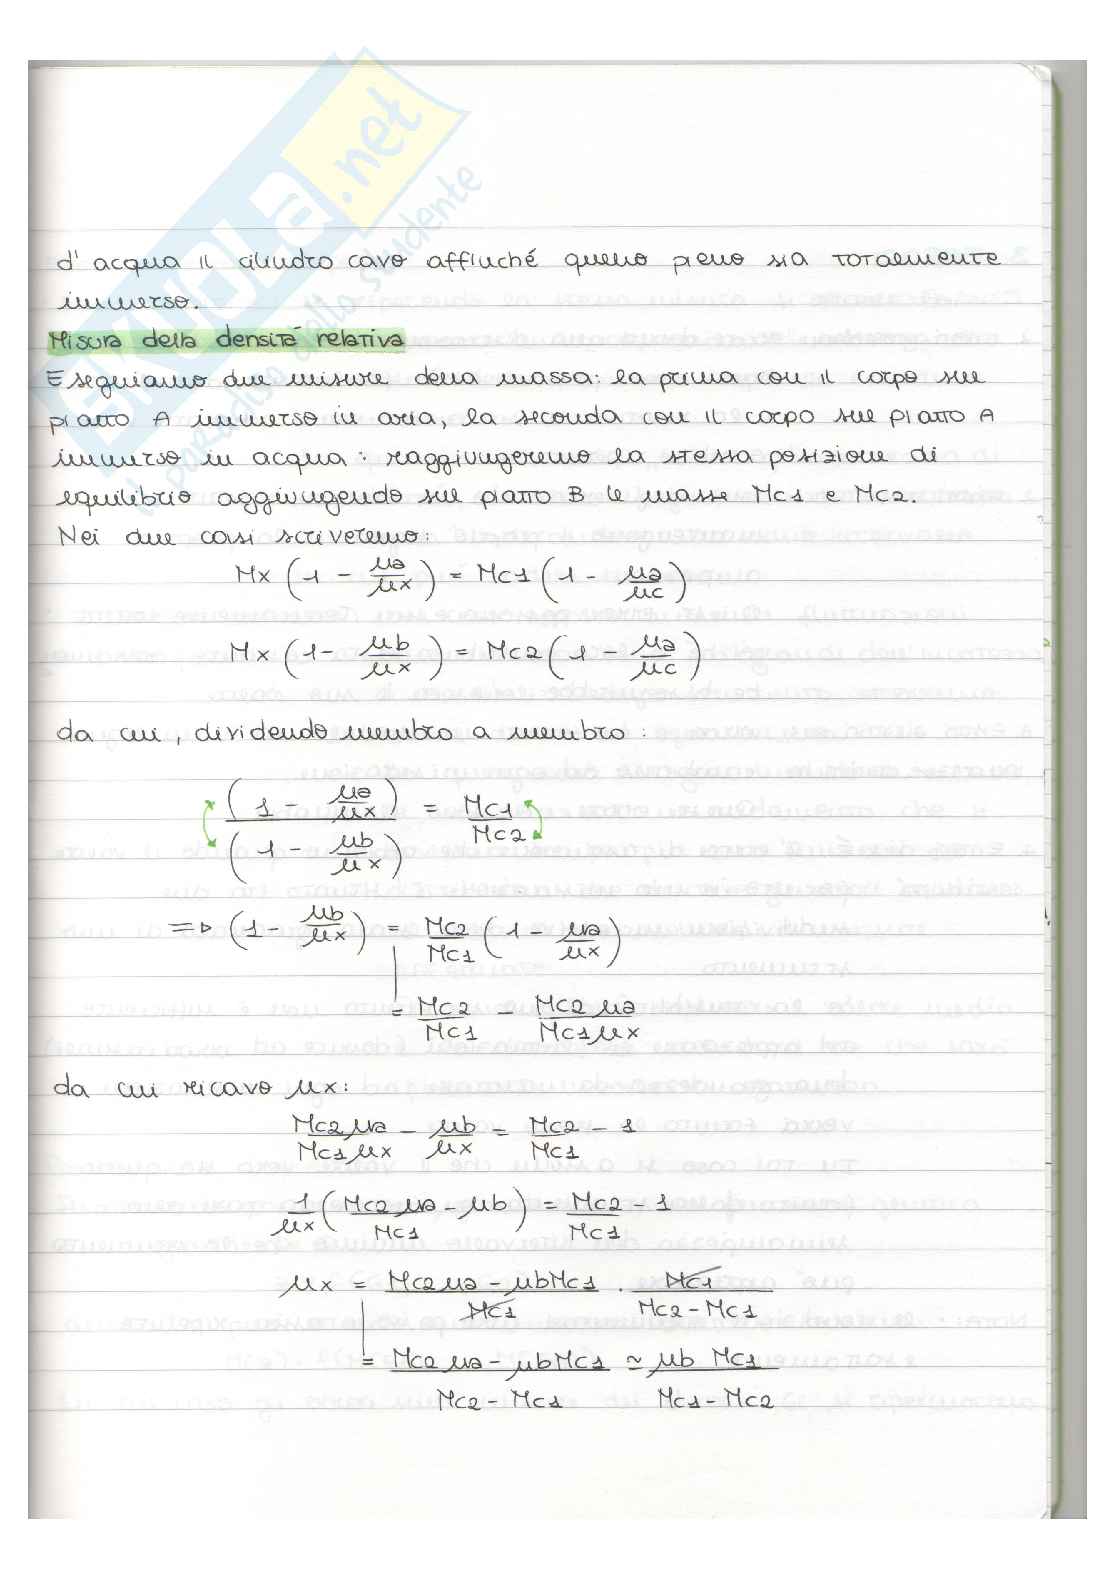 SKUOLA.net
il paradiso dello studente
d'acqua il cilindro cavo affinché quello pieno sia totalmente
immerso.
Misura della densità relativa
Eseguiamo due misure della massa: la prima con il corpo sul
piatto A immerso in aria, la seconda con il corpo sul piatto A
immerso in acqua: raggiungeremo la stessa posizione di
equilibrio aggiungendo sul piatto B le masse Mc1 e Mc2.
Nei due casi scriveremo:
Mx (1 - μa/μx) = Mc1 (1 - μa/μc)
Mx (1 - μb/μx) = Mc2 (1 - μa/μc)
da cui, dividendo membro a membro:
(1 - μa/μx) / (1 - μb/μx) = Mc1/Mc2
=> (1 - μb/μx) = Mc2/Mc1 (1 - μa/μx)
= Mc2/Mc1 - Mc2 μa/Mc1 μx
da cui ricavo μx:
Mc2 μa/Mc1 μx - μb/μx = Mc2/Mc1 - 1
1/μx (Mc2 μa/Mc1 - μb) = Mc2/Mc1 - 1
μx = (Mc2 μa - μb Mc1)/Mc1 · Mc1/(Mc2 - Mc1)
= (Mc2 μa - μb Mc1)/(Mc2 - Mc1) ≃ μb Mc1/(Mc1 - Mc2)